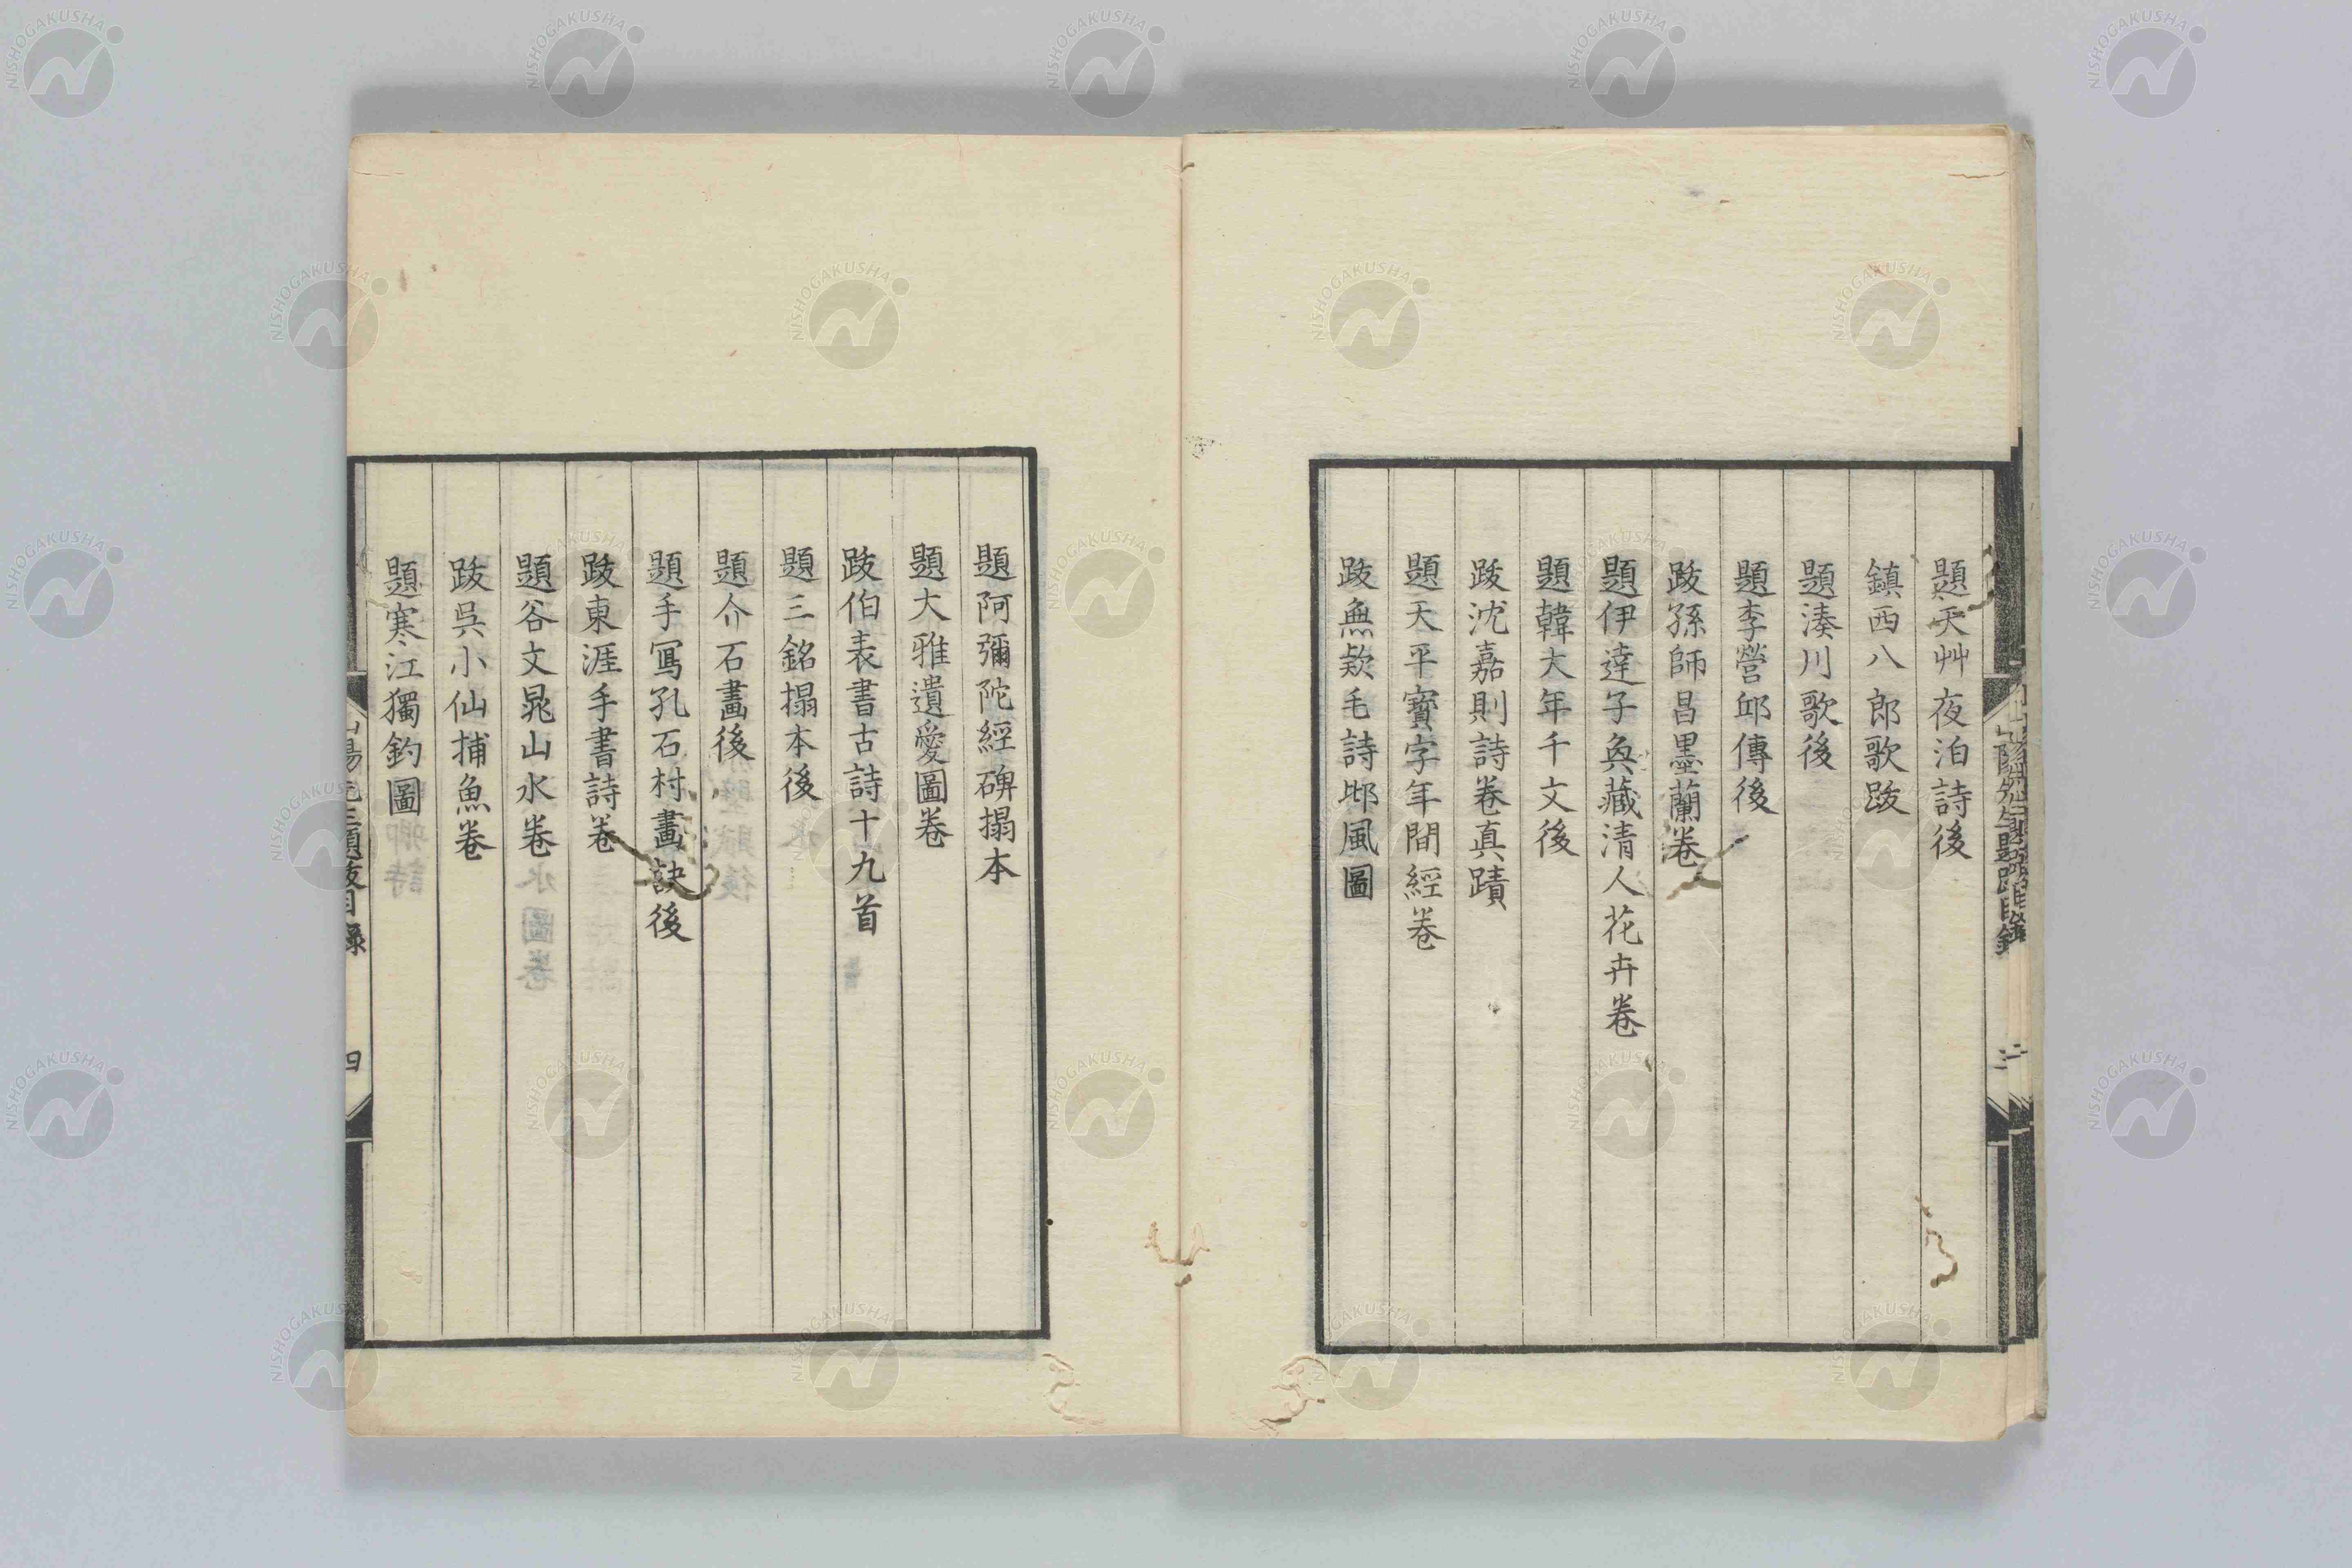 題天艸夜泊詩後
鎮西八郎歌跋
題湊川歌後
題李營邱傳後
跋孫師昌墨蘭卷
題伊達子奐藏清人花卉卷
題韓大年千文後
跋沈嘉則詩卷真蹟
題天平寶字年間經卷
跋無款毛詩邶風圖
題阿彌陀經碑搨本
題大雅遺愛圖卷
跋伯表書古詩十九首
題三銘搨本後
題介石畫後
題手寫孔石村畫訣後
跋東涯手書詩卷
題谷文晁山水卷
跋吳小仙捕魚卷
題寒江獨釣圖
山陽先生題跋目錄
四
NISHOGAKUSHA